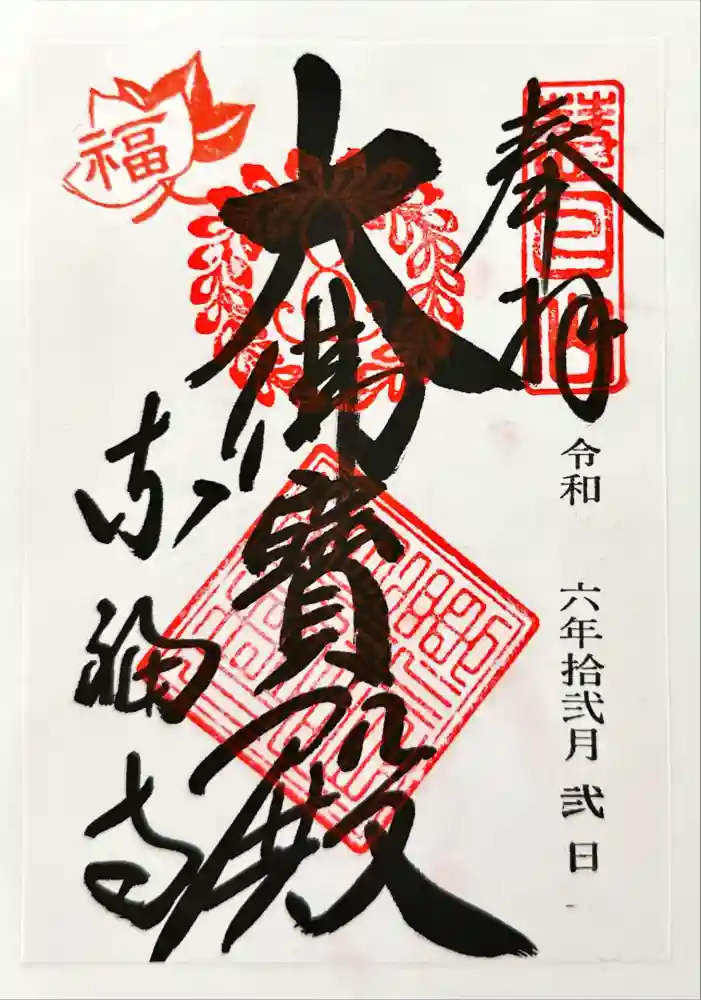 奉拝
慧日山
令和 六年拾弐月 弐 日
大佛寶殿
福
東福寺